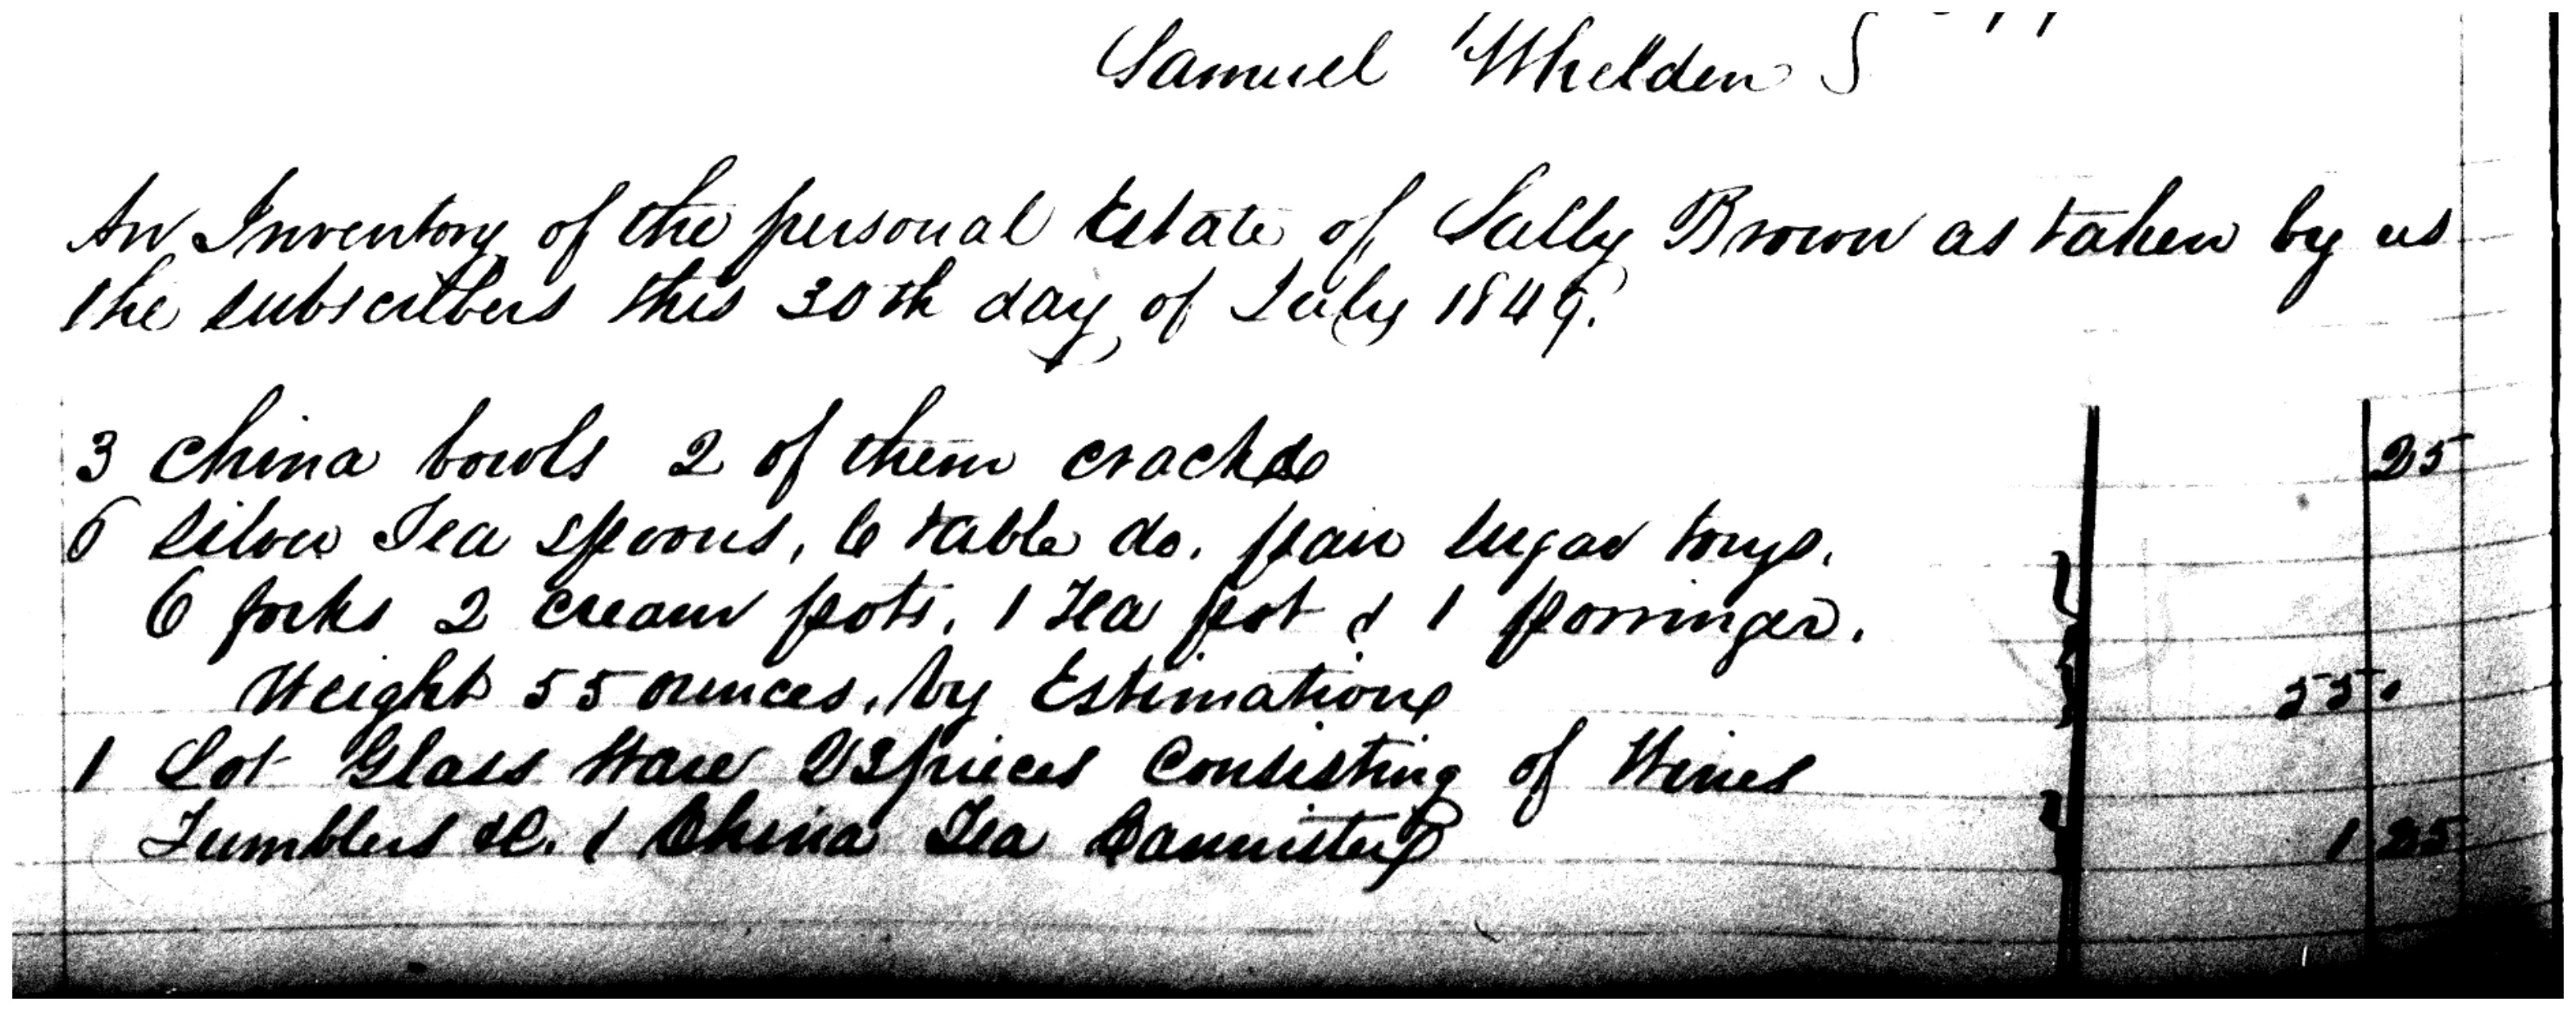 Samuel Whelden
An Inventory of the personal Estate of Sally Brown as taken by us
the subscribers this 30th day of July 1849.
3 China bowls 2 of them crackd 25
6 Silver Tea spoons, 6 table do. pair sugar tongs.
6 forks 2 cream pots, 1 Tea pot & 1 porringer.
Weight 55 ounces, by Estimation 55 .
1 Lot Glass Ware 23 pieces Consisting of Wines
Tumblers &c. 1 China Tea Cannister 1 25